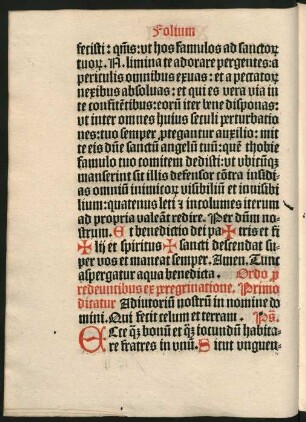 Folium
fecisti: qm̄s: vt hos famulos ad sanctoꝝ
tuoꝝ. N. limina te adorare pergentes: a
periculis omnibus exuas: et a peccatoꝝ
nexibus absoluas: et qui es vera via in
te confitētibus: eorū iter bene disponas:
vt inter omnes huius seculi ꝑturbatio
nes: tuo semper ꝓtegantur auxilio: mit
te eis dūe sanctū angelū tuū: quē thobie
famulo tuo comitem dedisti: vt vbicūqꝫ
manserint sit illis defensor cōtra insidi
as omniū inimicoꝝ visibiliū et inuisibi
lium: quatenus leti ⁊ incolumes iterum
ad propria valeāt redire. Per dūm no-
strum. Et benedictio dei pa✠tris et fi
✠lij et spiritus ✠ sancti descendat su
per vos et maneat semper. Amen. Tunc
aspergatur aqua benedicta. Ordo ꝓ
redeuntibus ex peregrinatione. Primo
dicatur Adiutoriū nostrū in nomine do
mini. Qui fecit celum et terram. Ps̄.
ECce qꝫ bonū et qꝫ iocundū habita-
re fratres in vnū. Sicut vnguen-